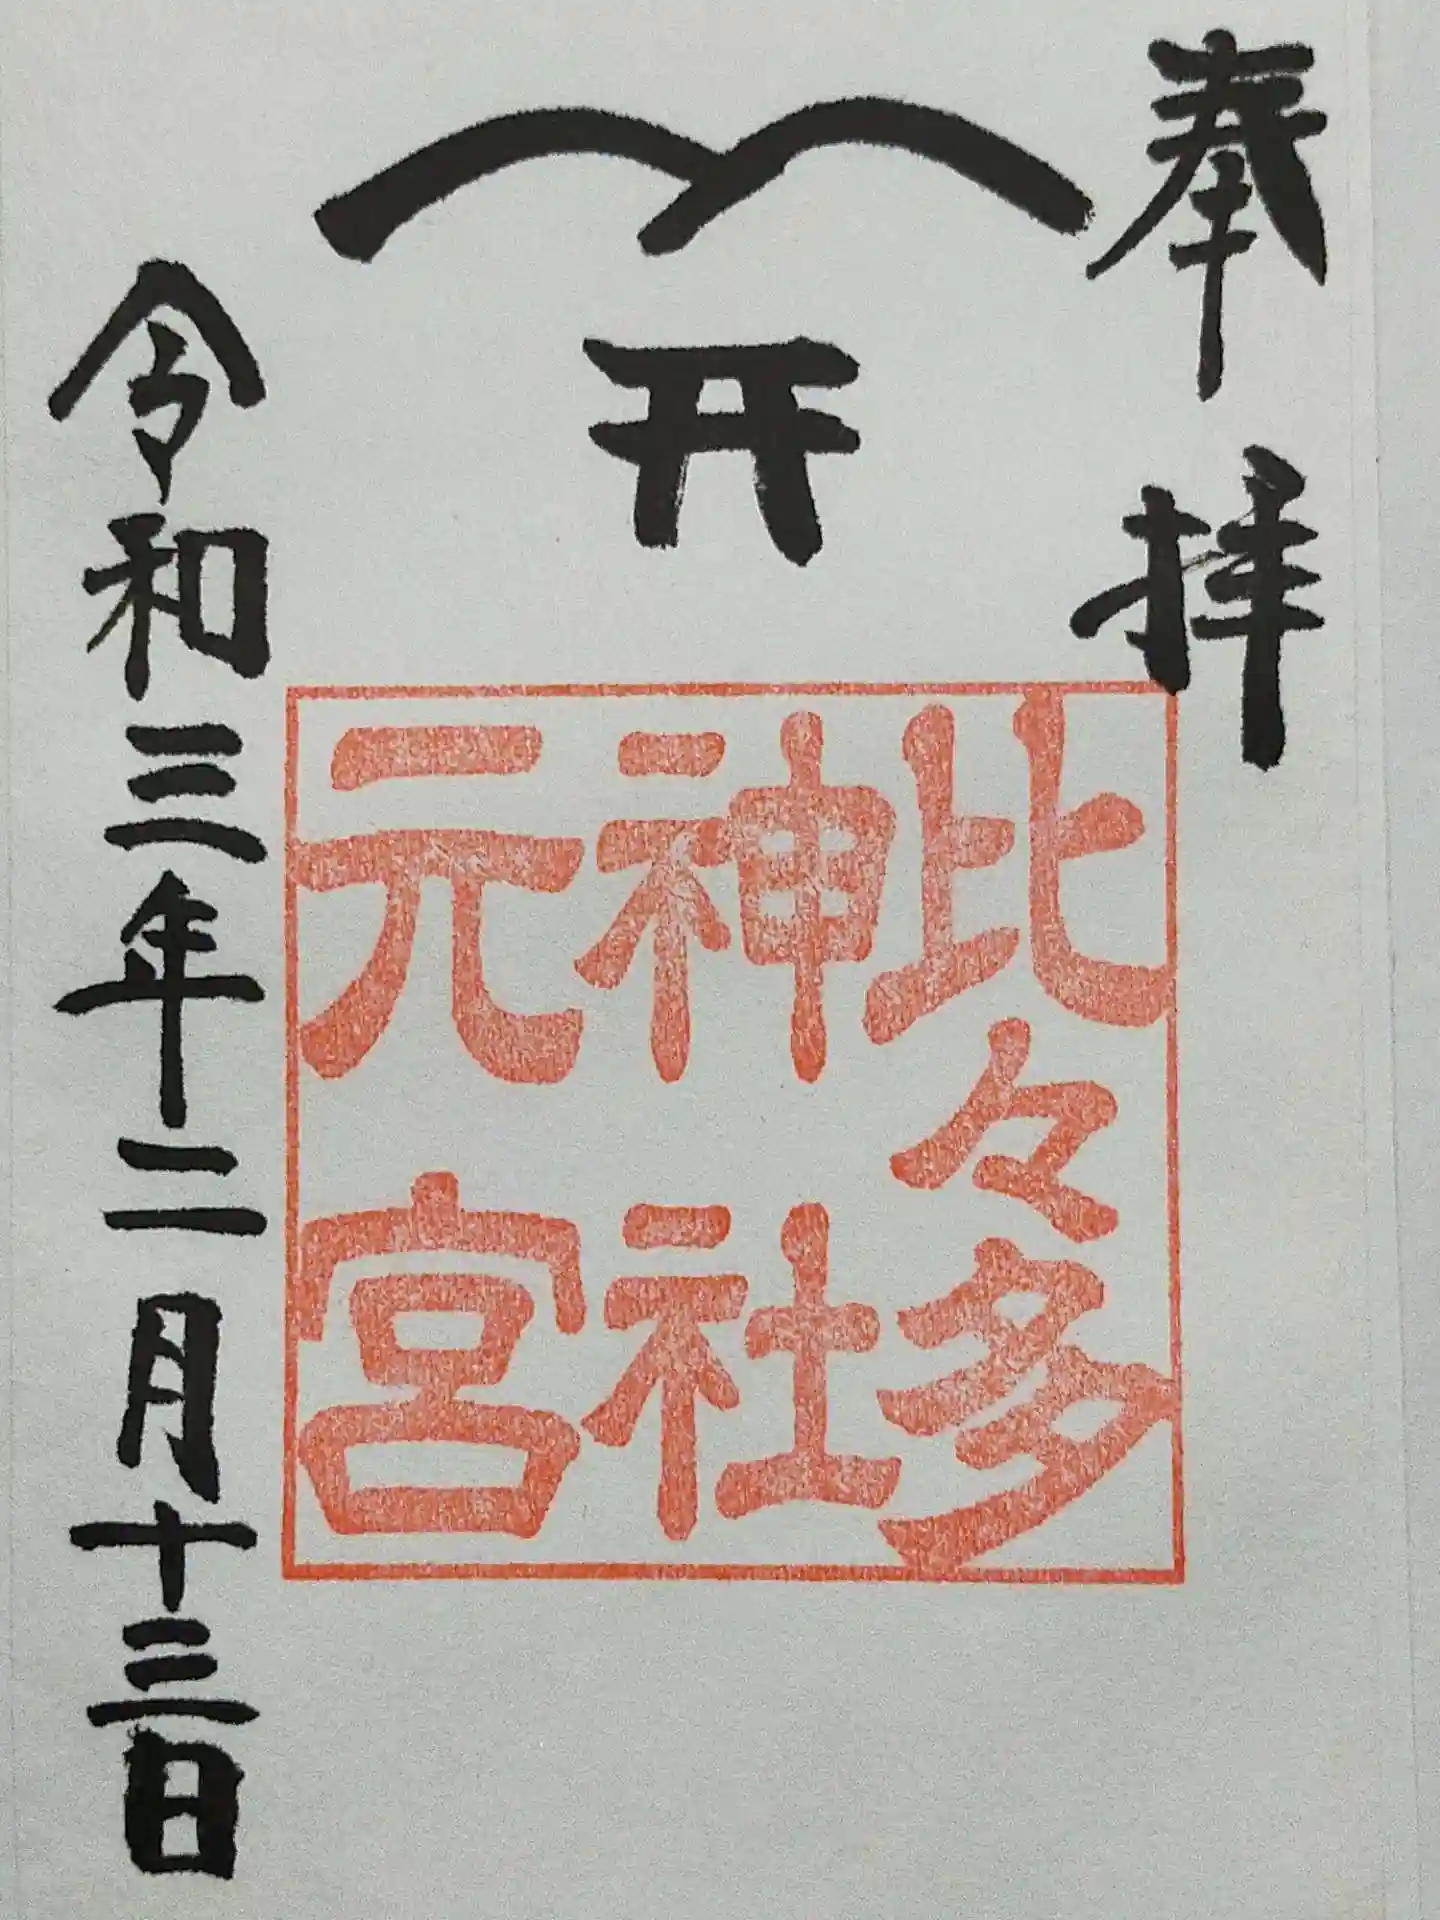 奉拝
比々多
神社
元宮
令和三年二月十三日